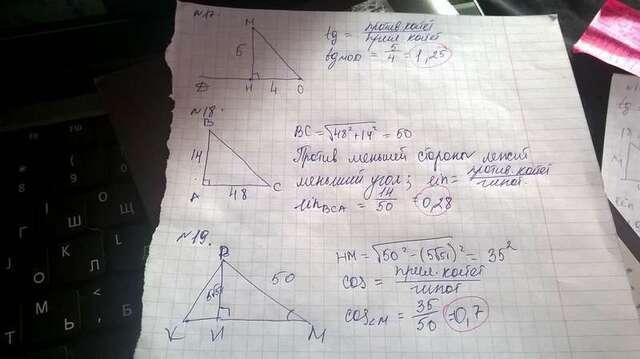 №17.
M
5
D H 4 O
tg = против. катет / прил. катет
tg MOD = 5/4 = 1,25
№18.
B
14
A 48 C
BC = √48²+14² = 50
Против меньшей стороны лежит
меньший угол; sin = против. катет / гипот.
sin BCA = 14/50 = 0,28
№19.
B
50
K H M
HM = √50²-(5√51)² = 35²
cos = прил. катет / гипот
cos<M = 35/50 = 0,7